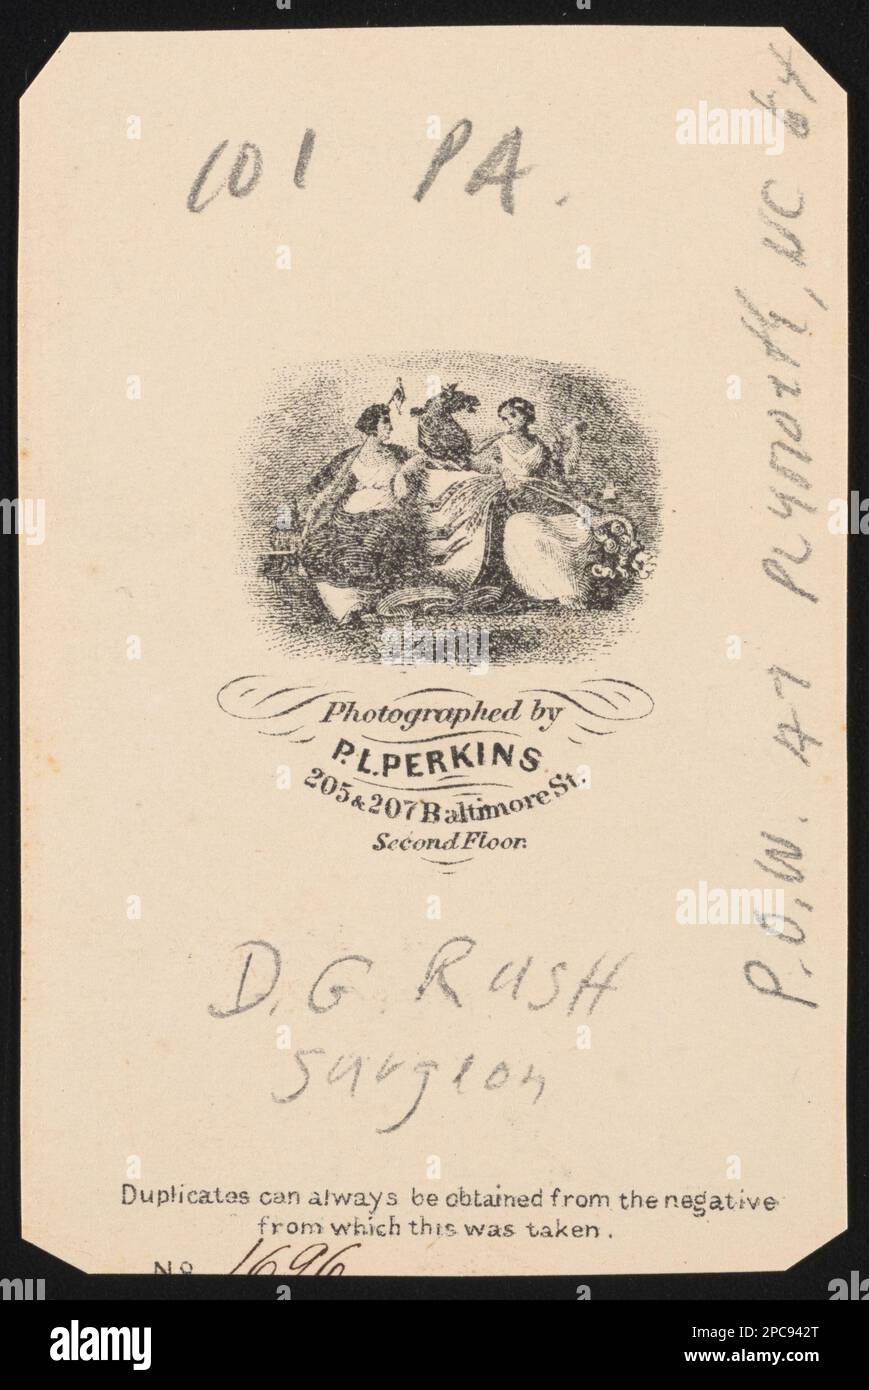 101 PA.
P.O.W. AT PLYMOUTH, NC 64
Photographed by
P. L. PERKINS
205 & 207 Baltimore St.
Second Floor.
D. G. RUSH
Surgeon
Duplicates can always be obtained from the negative
from which this was taken.
No 1696
alamy
Image ID: 2PC942T
www.alamy.com